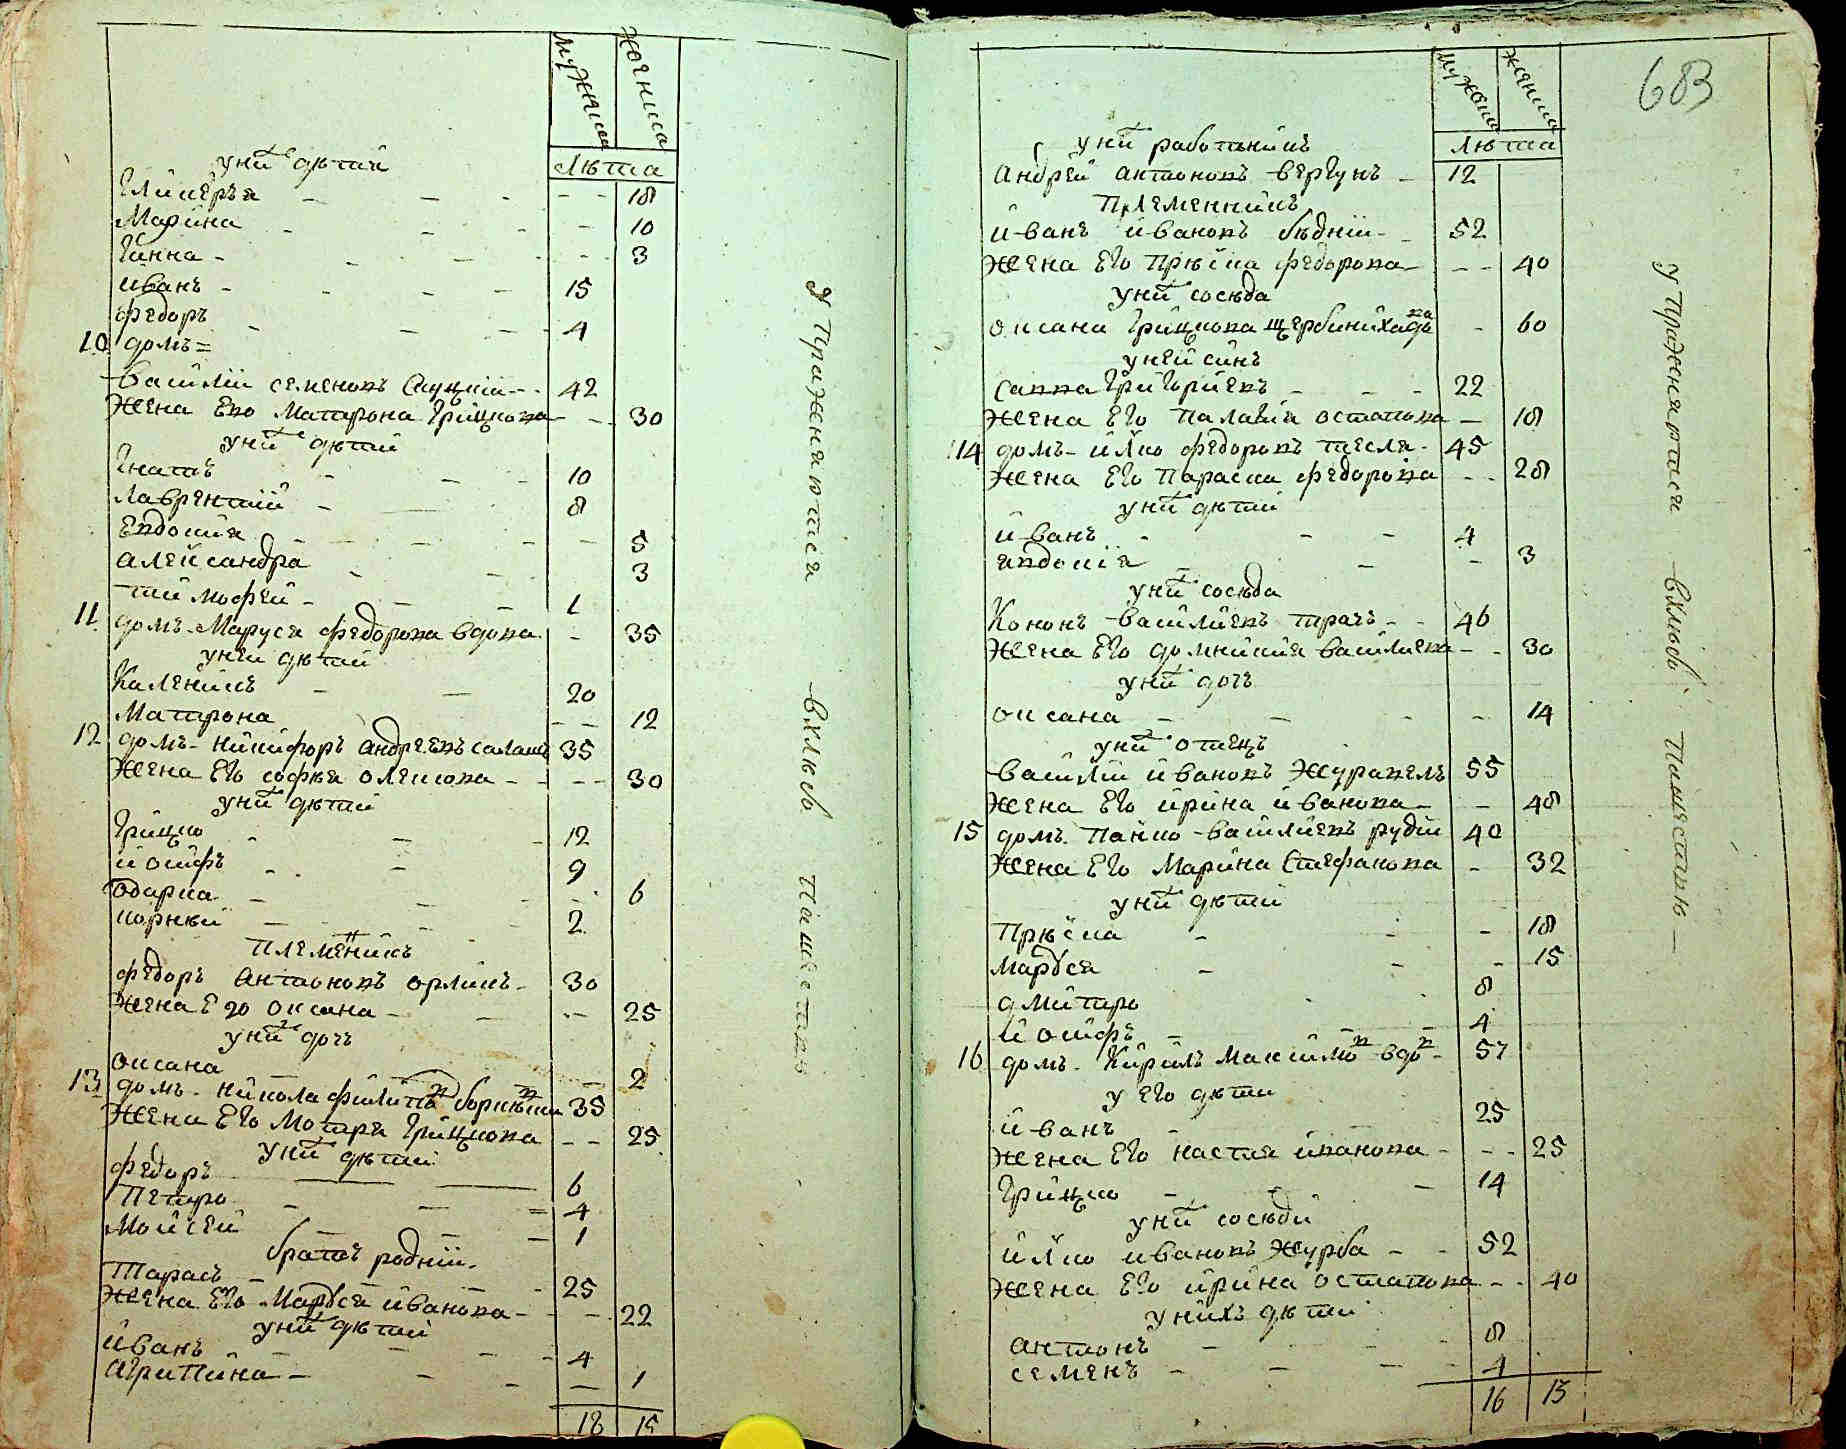 мужеска
женска
лѣта
унихъ дѣтей
Гликеръя 18
Марина 10
Ганна 3
иванъ 15
федоръ 4
10 домъ=
василій семеновъ Слуцкій 42
жена Его Матрона Грицкова 30
унихъ дѣтей
Гнатъ 10
Лаврентій 8
Евдокія 5
александра 3
тимофей 1
11 домъ Маруся федорова вдова 35
унеи дѣтей
Каленикъ 20
Матрона 12
12 домъ никифоръ андреевъ салаш 35
жена Его софья олешкова 30
унихъ дѣтей
Грицко 12
иосифъ 9
одарка 6
корнѣй 2
племенникъ
федоръ антоновъ орликъ 30
жена Его оксана 25
унихъ дочь
оксана 2
13 домъ никола филиповъ 35
жена Его Мотря Грицкова 25
унихъ дѣтей
федоръ 6
петро 4
Мойсей 1
братъ родній
Тарасъ 25
жена Его Маруся иванова 22
унихъ дѣтей
иванъ 4
агрипина 1
18 15
Упражняются вхлѣбопашествѣ
683
мужеска
женска
лѣта
унихъ работникъ
андрей антоновъ вергунъ 12
племенникъ
иванъ ивановъ бѣдній 52
жена Его прѣска федорова 40
унихъ сосѣда
оксана Грицкова щербиниха вдова 60
унеи синъ
савва Григориевъ 22
жена Его палагія остапова 18
14 домъ илко федоровъ тесля 45
жена Его параска федорова 28
унихъ дѣти
иванъ 4
явдокія 3
унихъ сосѣда
Кононъ василиевъ ткачъ 46
жена Его домникия василиева 30
унихъ дочь
оксана 14
унихъ отецъ
василій ивановъ журавель 55
жена Его ирина иванова 48
15 домъ панко василиевъ рудій 40
жена Его Марина Стефанова 32
унихъ дѣти
прѣска 18
Маруся 15
дмитро 8
иосифъ 4
16 домъ Кирилъ Максимовъ вдовъ 57
у Его дѣти
иванъ 25
жена Его настя иванова 25
Грицко 14
унихъ сосѣди
илко ивановъ журба 52
жена Его ирина остапова 40
унихъ дѣти
антонъ 8
семенъ 4
16 13
Упражняются вхлѣбопашествѣ